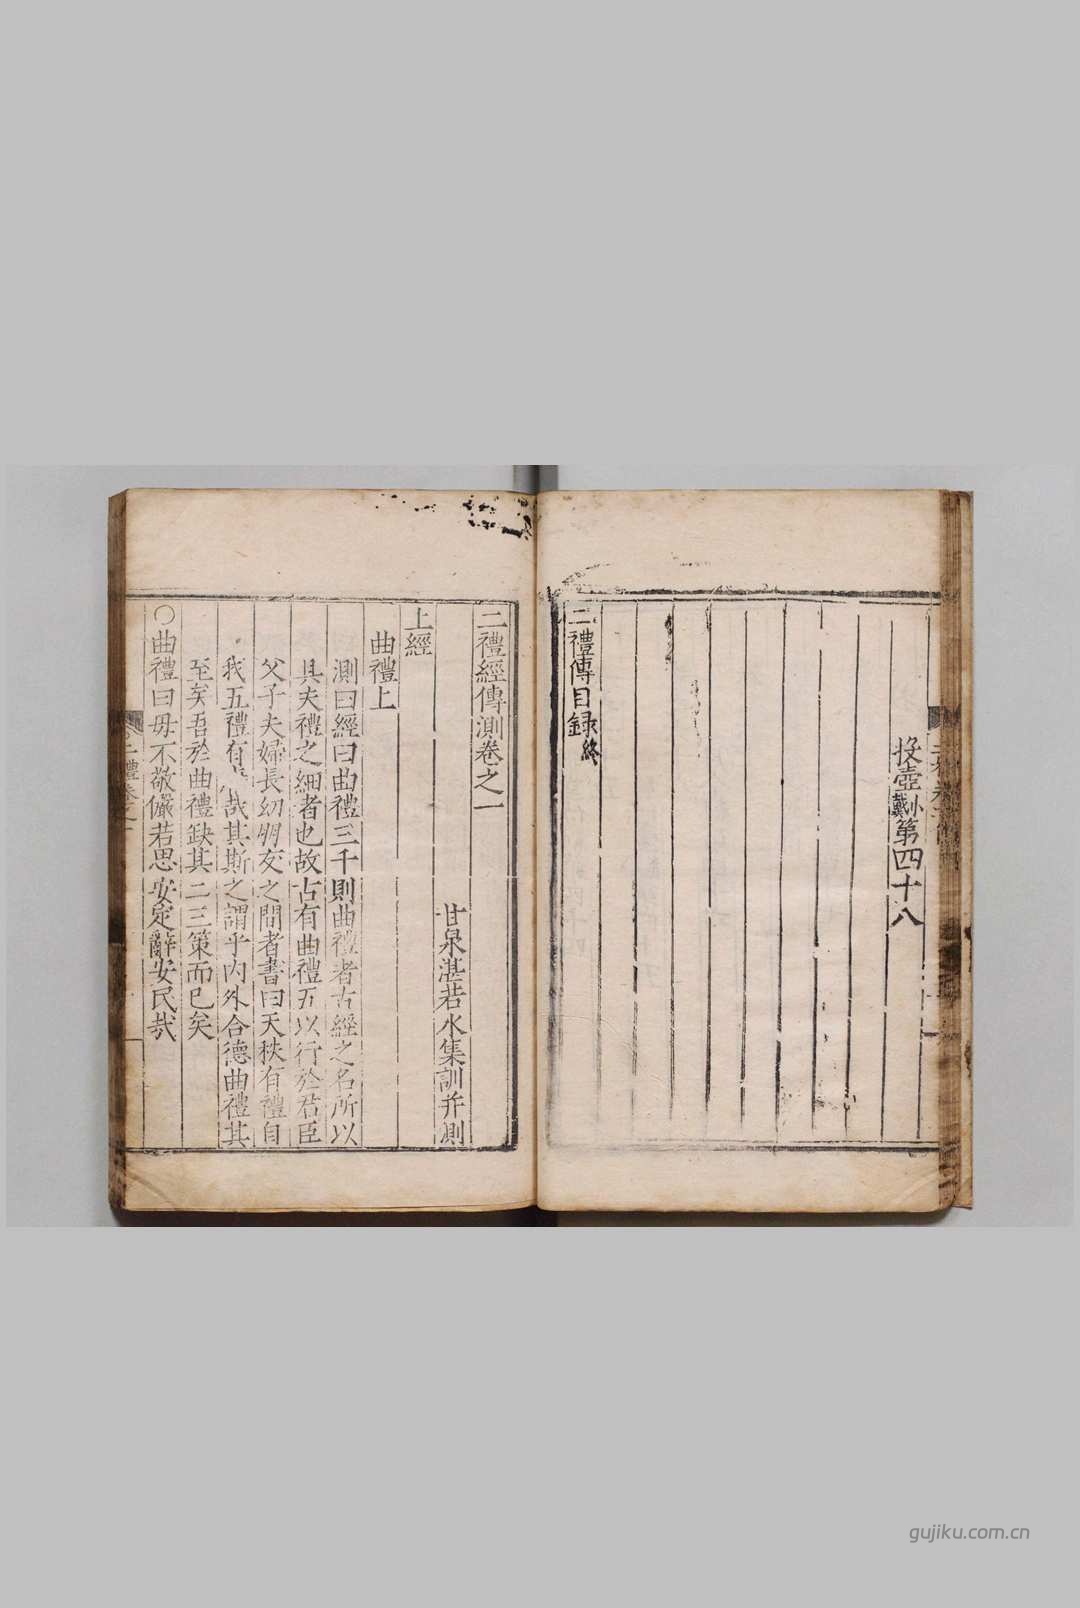 投壺小戴第四十八
二禮傳目録終
二禮經傳測卷之一
甘泉湛若水集訓并測
上經
曲禮上
測曰經曰曲禮三千則曲禮者古經之名所以
具夫禮之細者也故古有曲禮五以行於君臣
父子夫婦長幼朋友之間者書曰天秩有禮自
我五禮有哉其斯之謂乎内外合德曲禮其
至矣吾於曲禮缺其二三策而已矣
○曲禮曰毋不敬儼若思安定辭安民哉
二禮卷之一
gujiku.com.cn